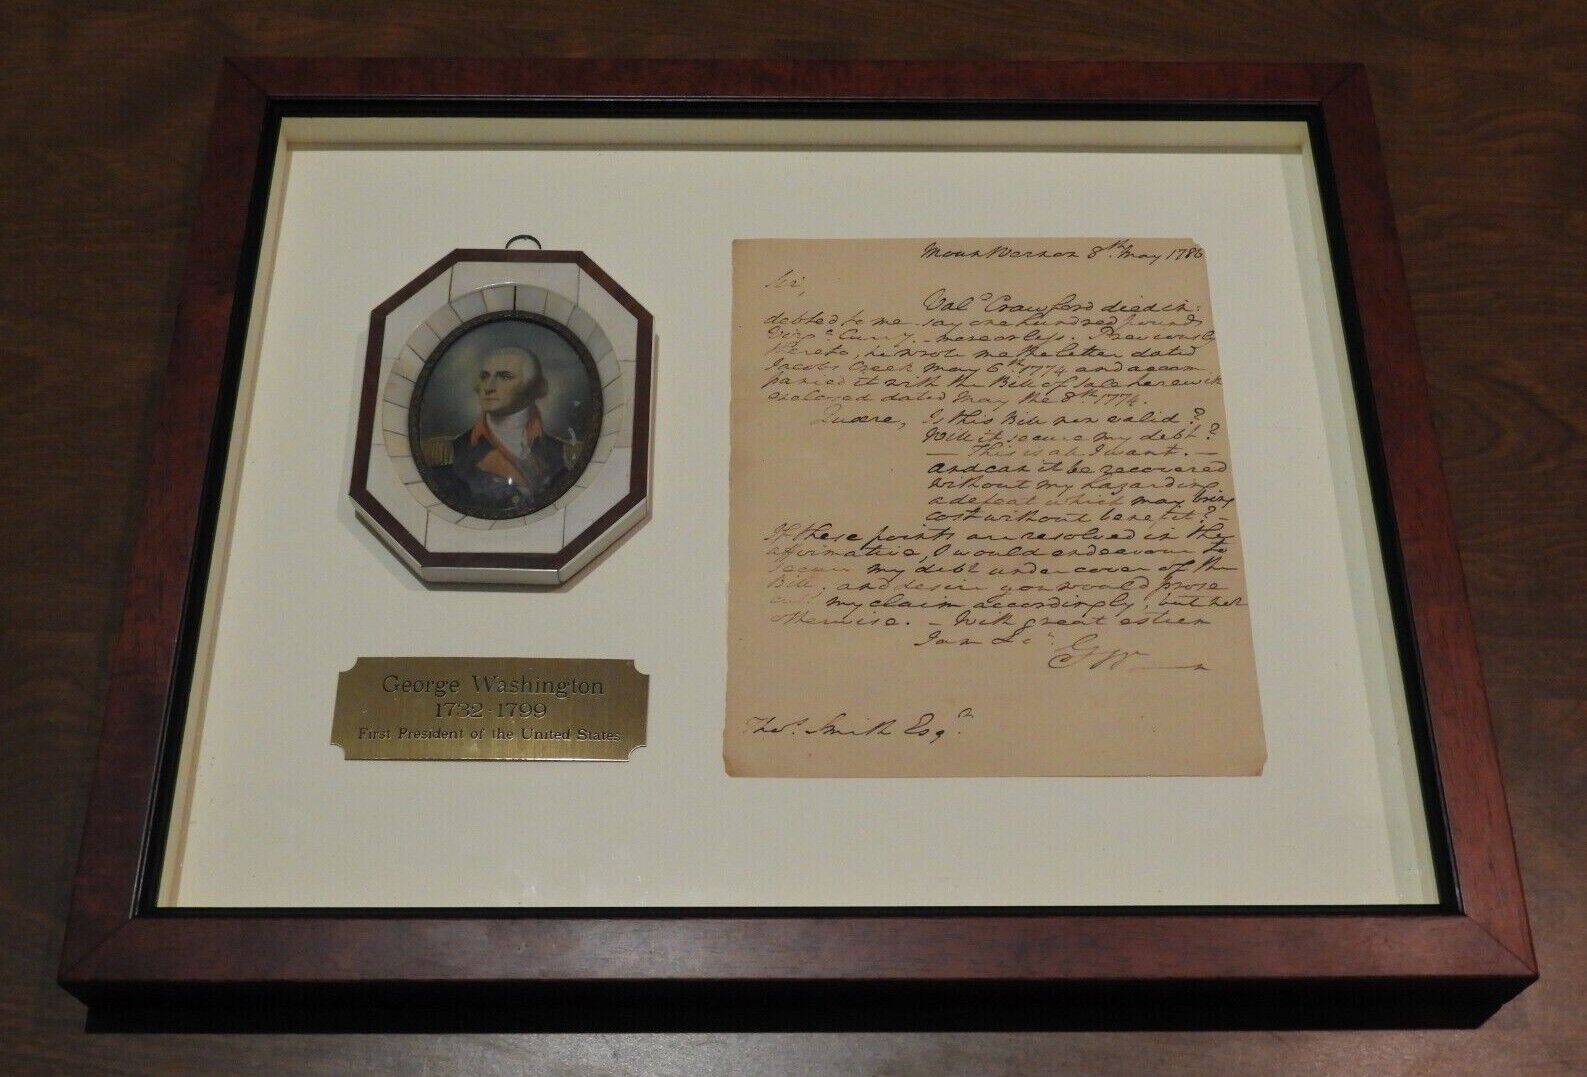 George Washington
1732-1799
First President of the United States
Mount Vernon 8th May 1786
Sir,
Valo Crawford died in:
debted to me say one hundred pounds
Virga Curry. - more or less. Previously
thereto, he wrote me the letter dated
Jacobs Creek May 6th 1774 and accom
panied it with the Bill of Sale herewith
enclosed dated May the 8th 1774.
Quære, Is this Bill now valid?
Will it secure my debt?
- This is all I want. -
and can it be recovered
without my hazarding
a defeat which may bring
cost without benefit? -
If these points are resolved in the
affirmative, I would endeavour to
secure my debt under cover of the
Bill; and desire you would prose
cute my claim accordingly; but not
otherwise. - With great esteem
I am &ca
G Wn
Thos Smith Esqr